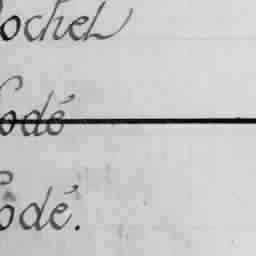 ochet
odé
odé.